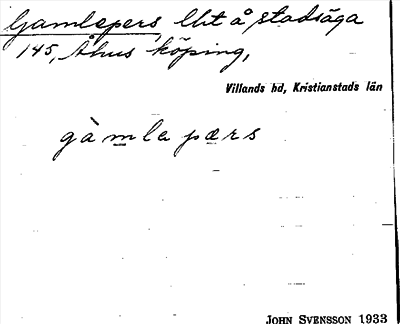 Gamlepers, lht å stadsäga
145, Åhus köping,
Villands hd, Kristianstads län
gàmla pærs
John Svensson 1933